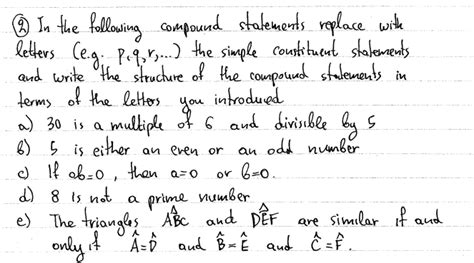 ② In the following compound statements replace with
letters (e.g. p,q,r,...) the simple constituent statements
and write the structure of the compound statements in
terms of the letters you introduced
a) 30 is a multiple of 6 and divisible by 5
b) 5 is either an even or an odd number
c) If ab=0, then a=0 or b=0.
d) 8 is not a prime number
e) The triangles AB̂C and DÊF are similar if and
only if Â=D̂ and B̂=Ê and Ĉ=F̂.